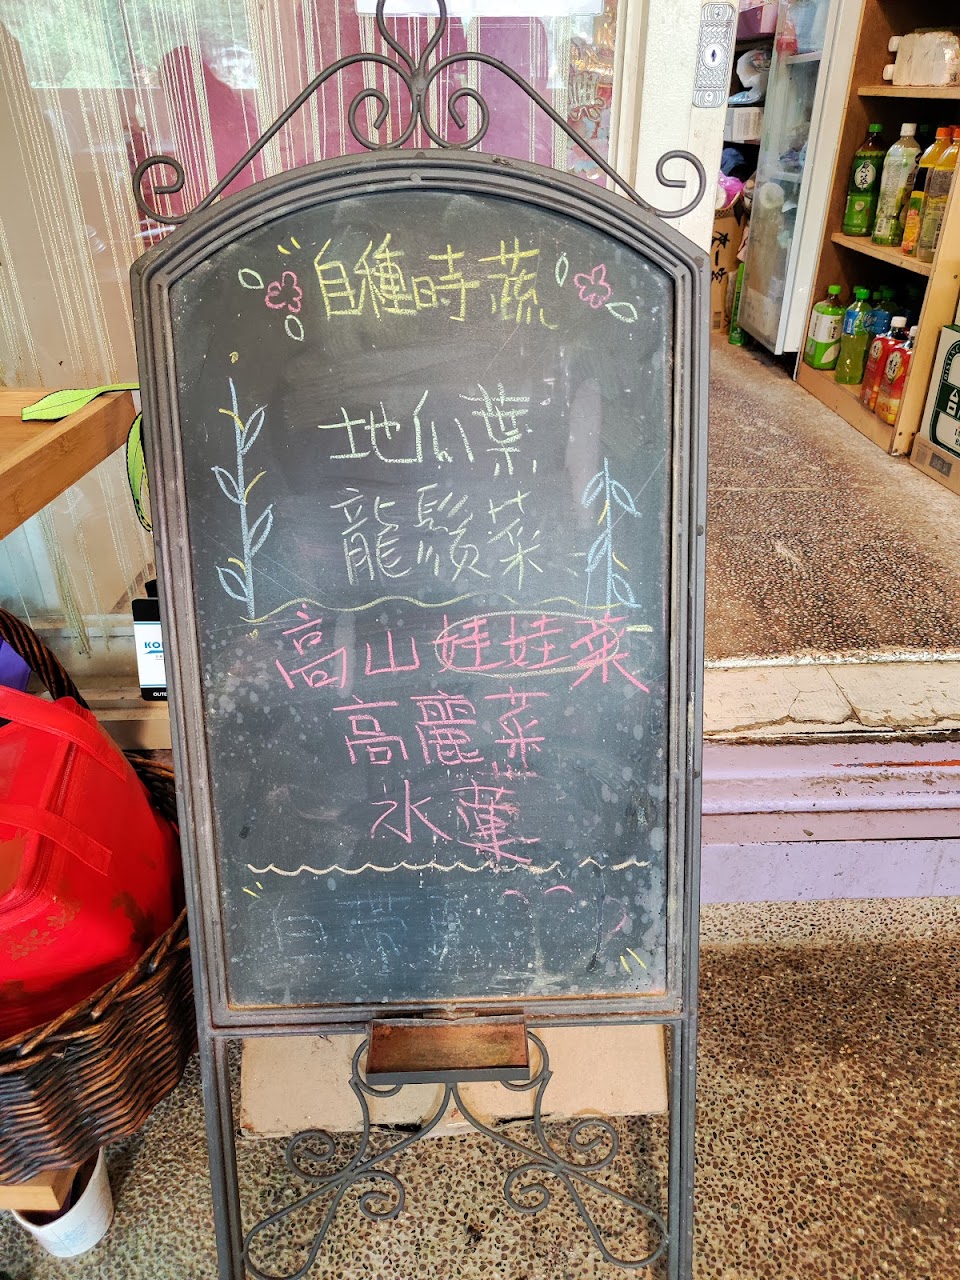 自種時蔬
地瓜葉
龍鬚菜
高山娃娃菜
高麗菜
水蓮